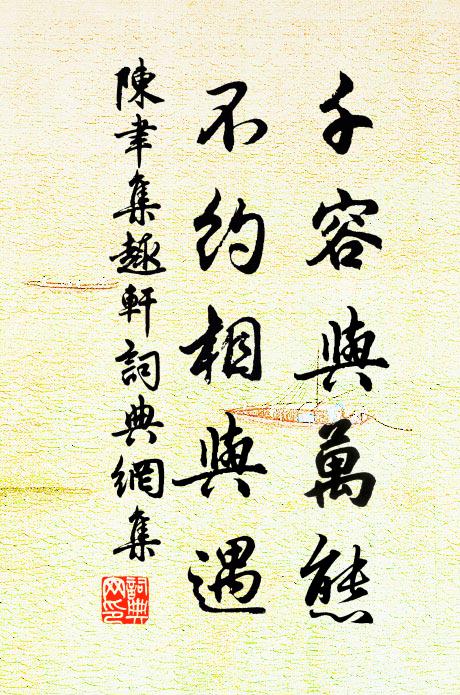 千容與萬態
不約相與遇
陳聿集趣軒詞典網集
詞典
网印